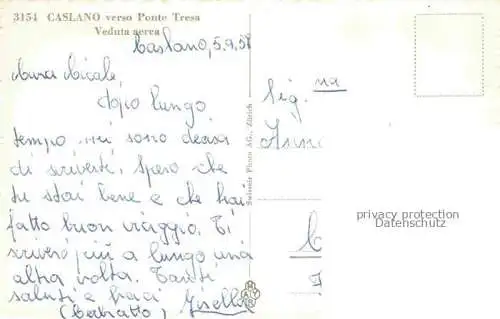 3154 CASLANO verso Ponte Tresa
Veduta aerea
Caslano, 5.9.58
Cara Micale
dopo lungo
tempo mi sono decisa
di scriverti, spero che
tu stai bene e che hai
fatto buon viaggio. Ti
scriverò più a lungo una
altra volta. Tanti
saluti e baci Gisella
Swissair Photo AG., Zürich
Sig.na
privacy protection
Datenschutz